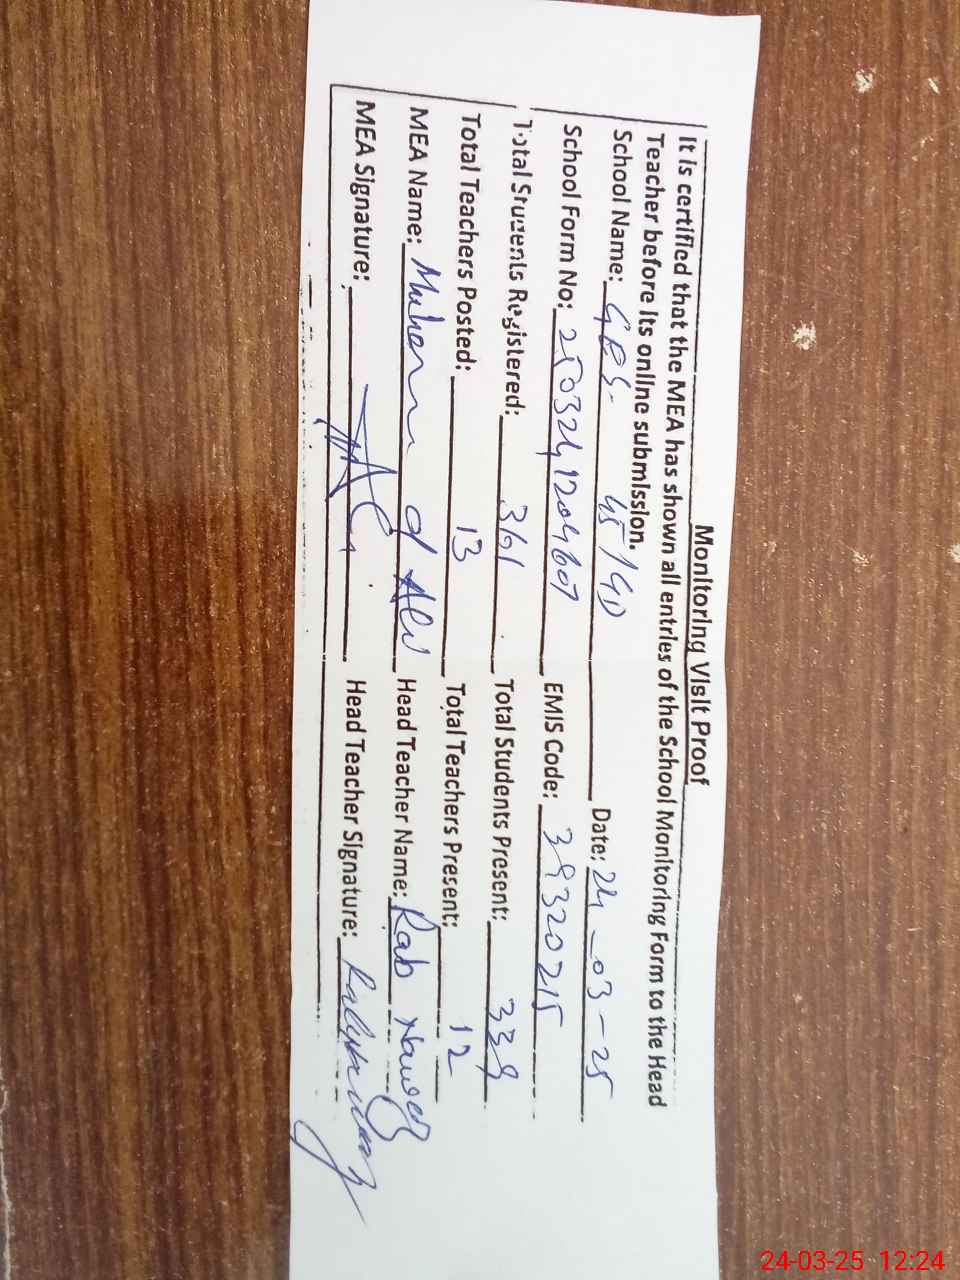 Monitoring Visit Proof
It is certified that the MEA has shown all entries of the School Monitoring Form to the Head
Teacher before its online submission.
School Name: GES. 45/GD Date: 24-03-25
School Form No: 2503241204607 EMIS Code: 39320215
Total Students Registered: 361 Total Students Present: 339
Total Teachers Posted: 13 Total Teachers Present: 12
MEA Name: Muhammad Ali Head Teacher Name: Rab Nawaz
MEA Signature: Head Teacher Signature:
24-03-25 12:24